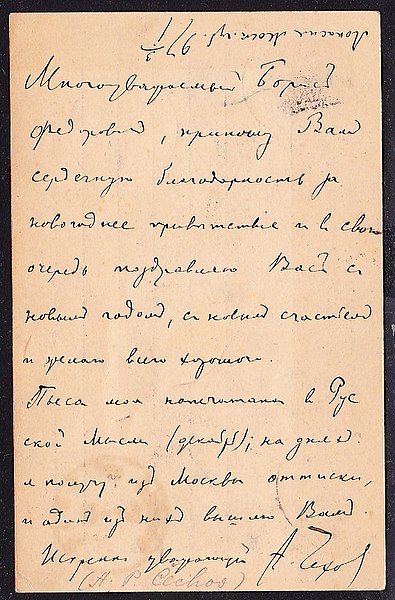 Лопасня Моск. губ. 97 2/I
Многоуважаемый Борис
Федорович, приношу Вам
сердечную благодарность за
новогоднее приветствие и в свою
очередь поздравляю Вас с
новым годом, с новым счастьем
и желаю всего хорошего.
Пьеса моя напечатана в Рус
ской Мысли (декабрь); на днях
я получу из Москвы оттиски,
и один из них вышлю Вам.
Искренно уважающий А. Чехов
(A. P. Cechov)